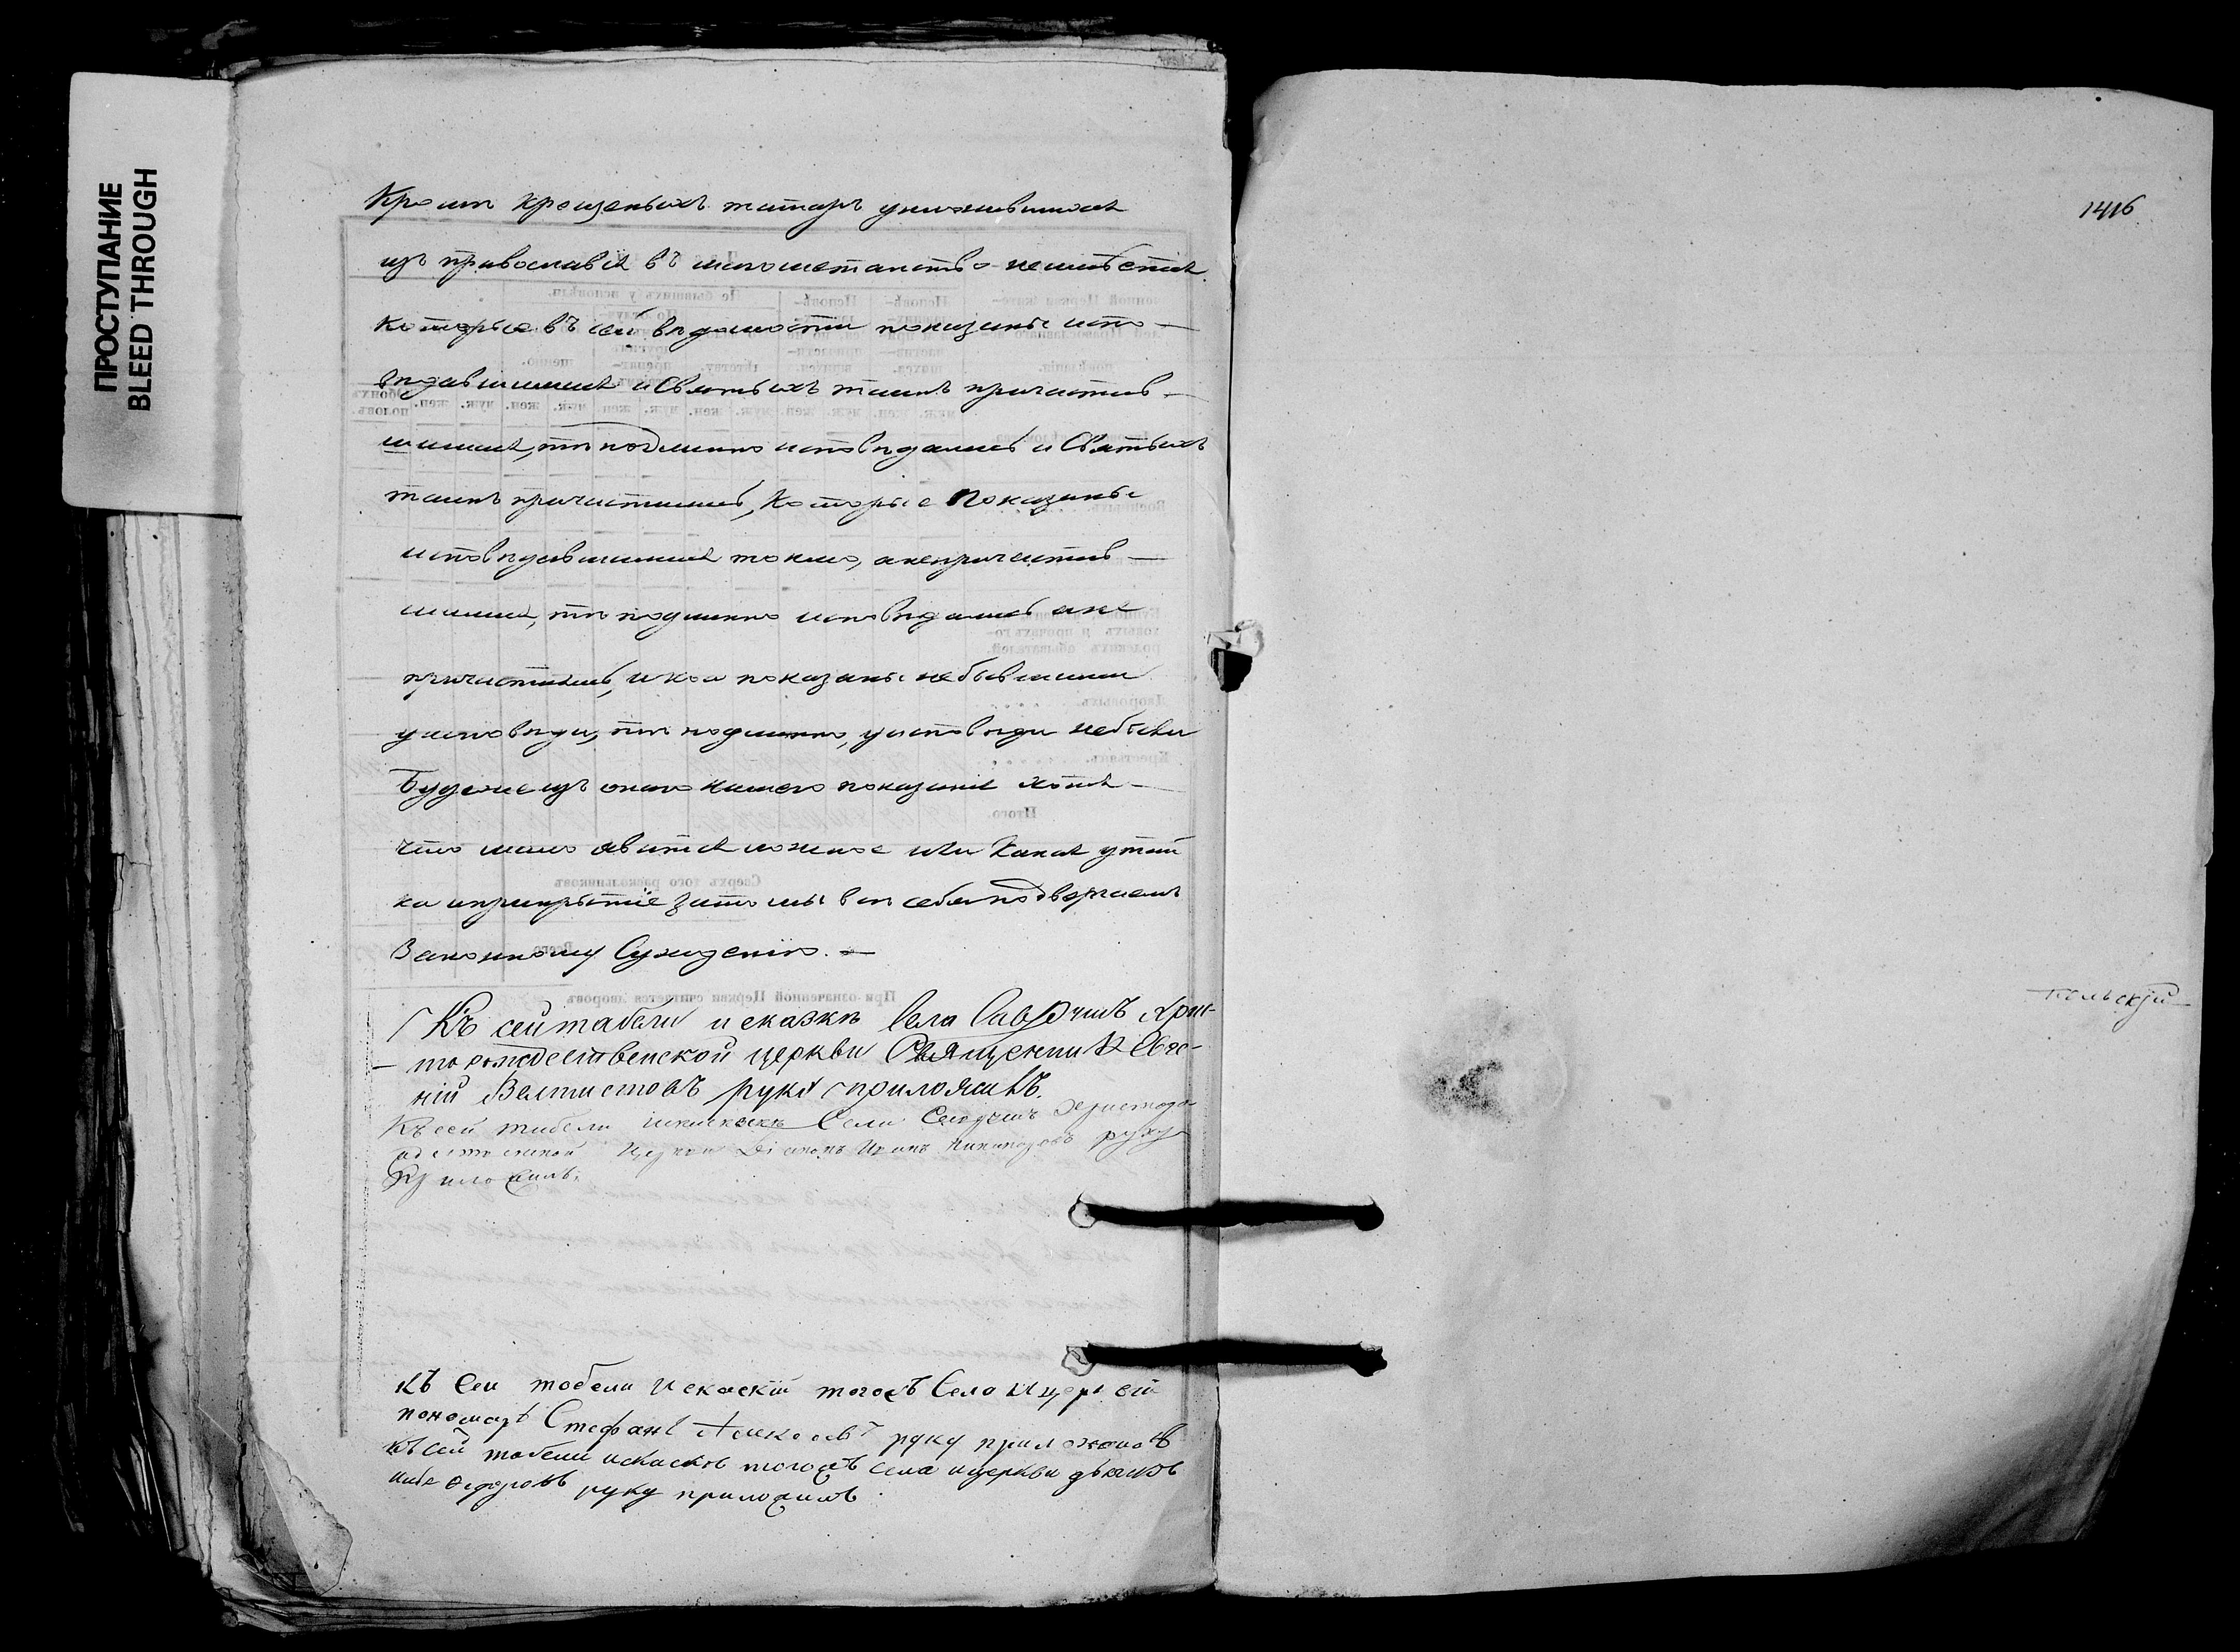 ПРОСТУПАНИЕ
BLEED THROUGH
Кромѣ крещеныхъ татаръ уклонившихся
изъ православія въ магометанство неимѣется.
Которые въ сей вѣдомости показаны испо-
вѣдавшимися и Святыхъ таинъ причастив-
шимися, тѣ подлинно исповѣдались и Святыхъ
таинъ причастились, Которые показаны
исповѣдавшимися токмо, а непричастив-
шимися, тѣ подлинно исповѣдались а не
причастились, и кои показаны небывшими
у исповѣди, тѣ подлинно, у исповѣди небыли
Буде же изъ онаго нашего показанія хотя
что мало явится ложное или Какая утай
ка и прикрытіе зато мы всѣ себя подвергаемъ
Законному Сужденію. —
Къ сей табели и сказкѣ Села Савручь Хрис-
торождественской церкви Священникъ Евге-
ній Велтистовъ руку приложилъ.
Къ сей табели и сказкѣ Села Савручь Христоро
ждественской Церкви Діаконъ Иванъ Никифоровъ руку
Приложилъ.
къ Сей табели и скаски тогожъ Села и церкви
пономарь Стефанъ руку приложилъ
къ сей табели и скаскѣ тогожъ села и церкви дьячокъ
Ѳедоровъ руку приложилъ
1416